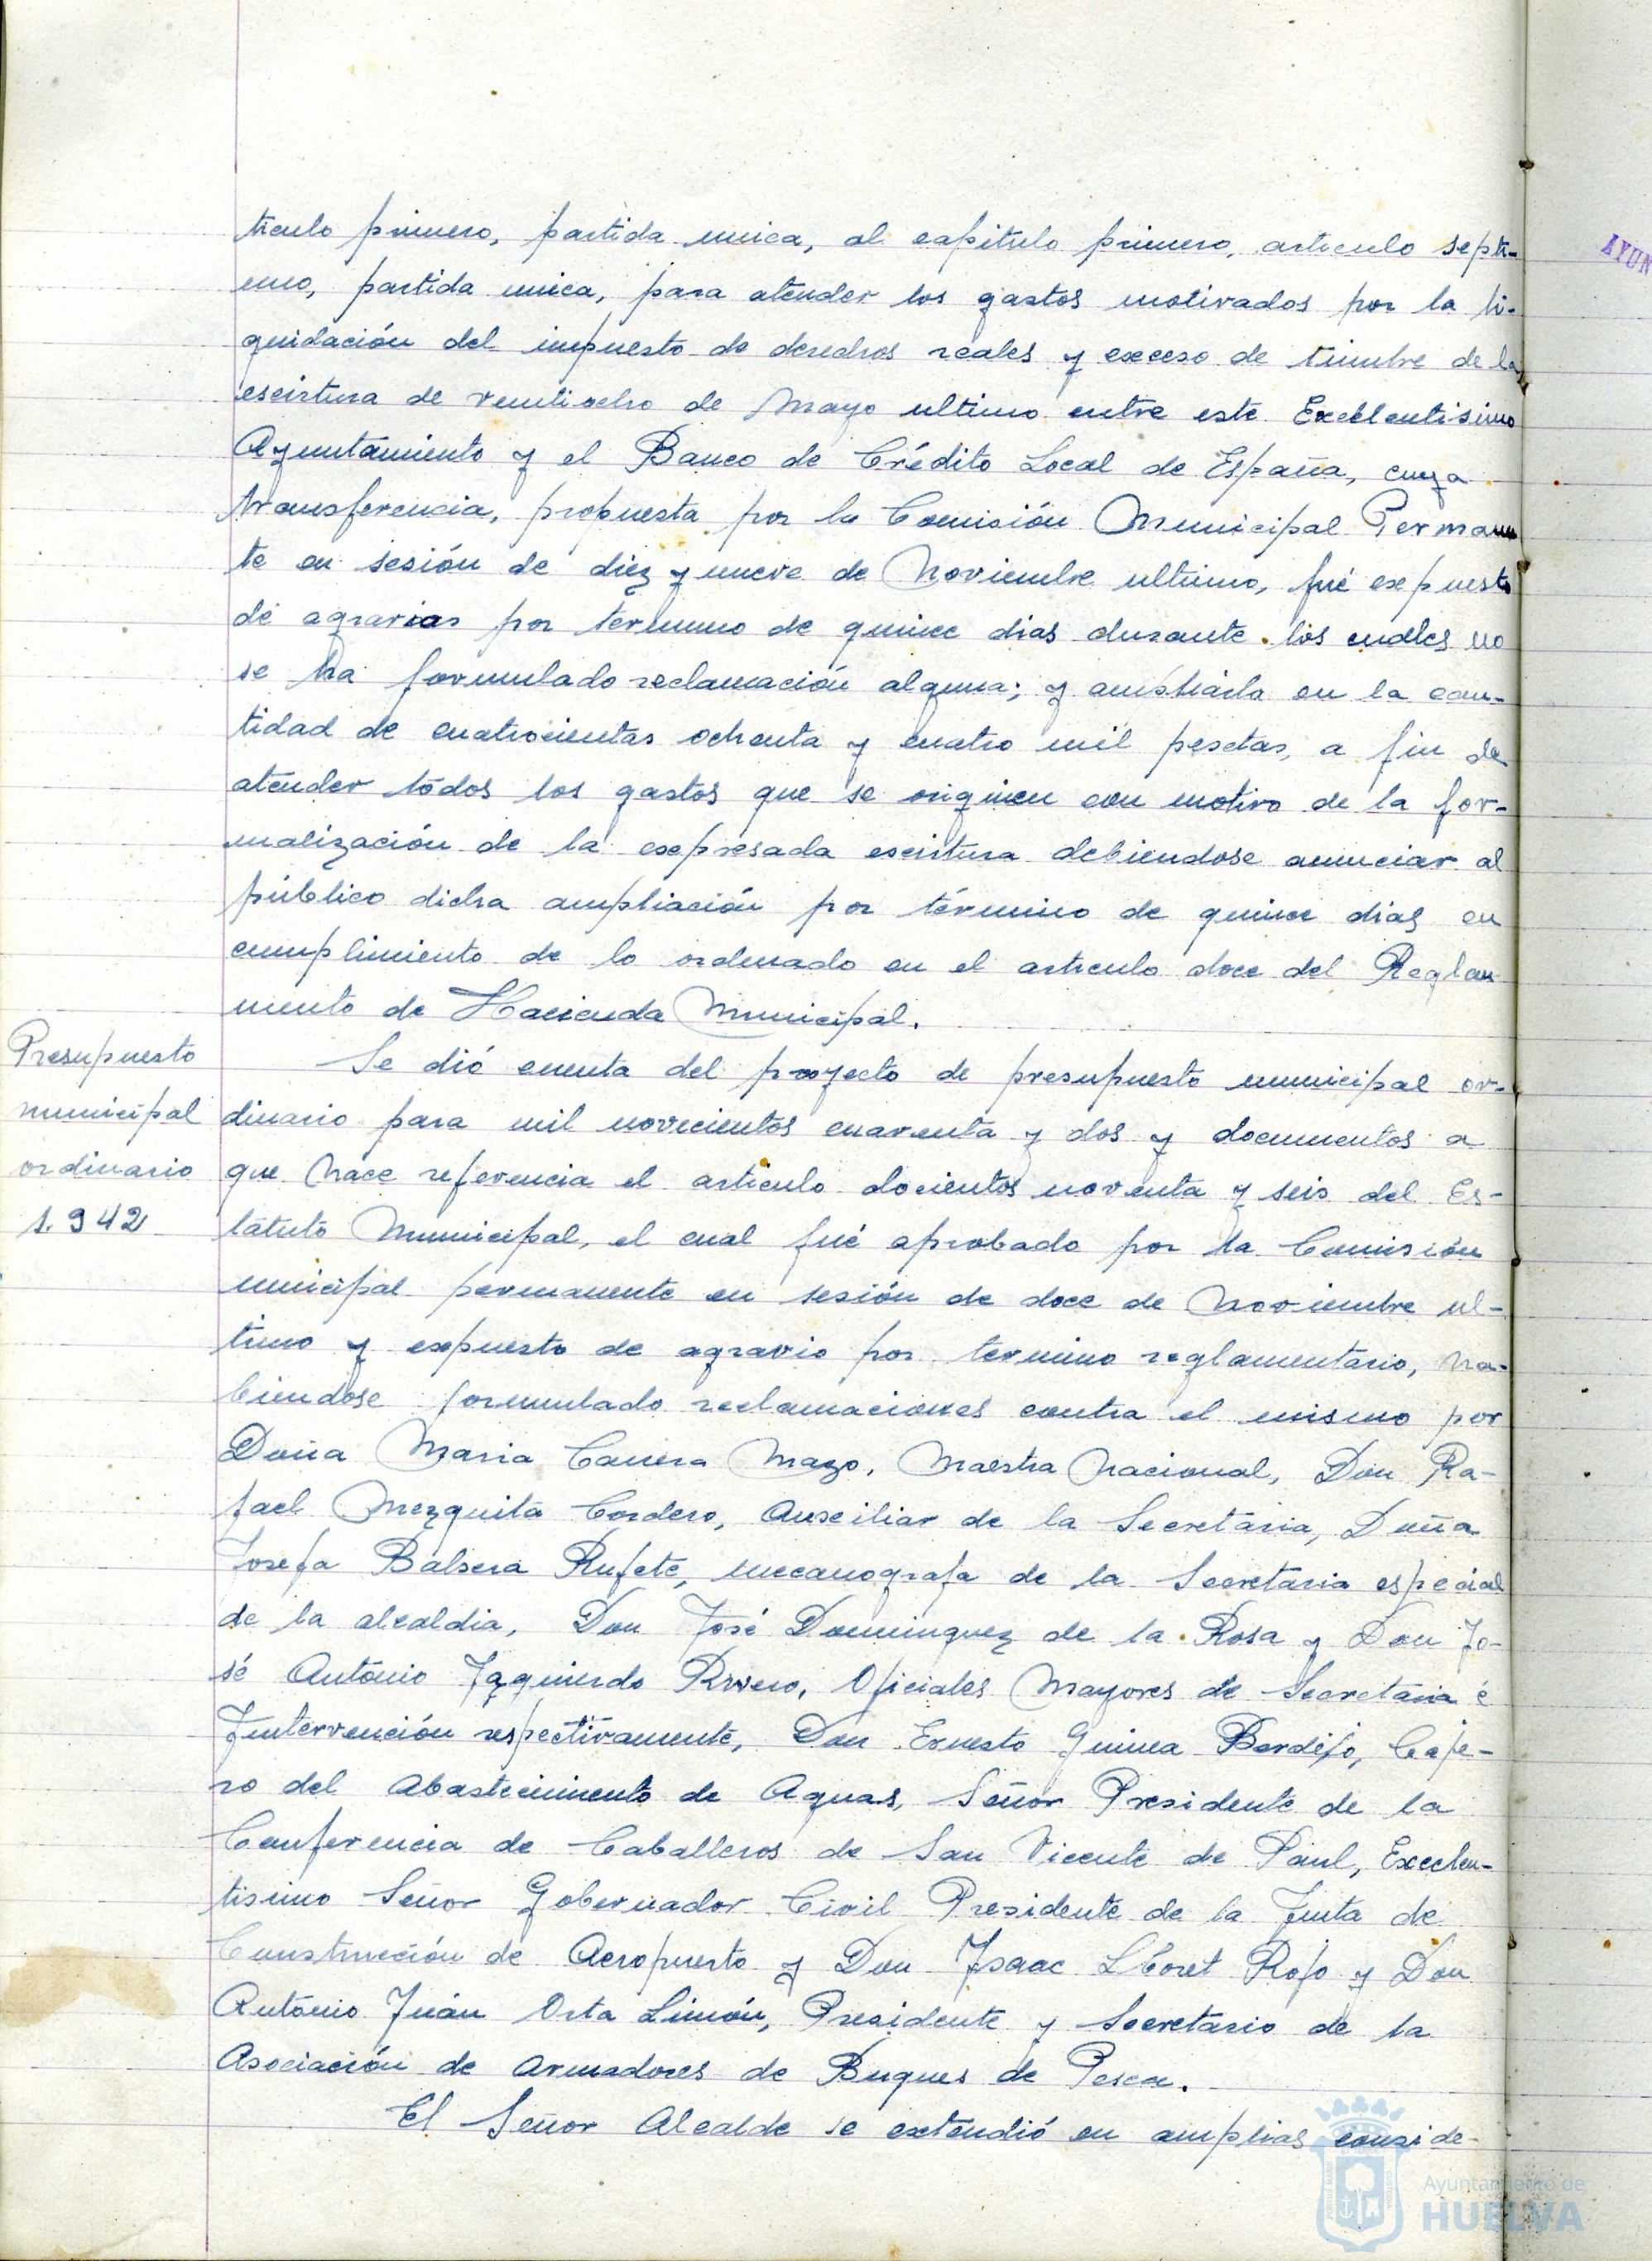 ticulo primero, partida unica, al capitulo primero, articulo septi-
mo, partida unica, para atender los gastos motivados por la li-
quidación del impuesto de derechos reales y exceso de timbre de la
escritura de ventiocho de Mayo ultimo entre este Excelentisimo
Ayuntamiento y el Banco de Crédito Local de España, cuya
transferencia, propuesta por la Comisión Municipal Permanen
te en sesión de diez y nueve de Noviembre ultimo, fué expuesta
de agravios por termino de quince dias durante los cuales no
se ha formulado reclamación alguna; y ampliarla en la can-
tidad de cuatrocientas ochenta y cuatro mil pesetas, a fin de
atender todos los gastos que se originen con motivo de la for-
malización de la expresada escritura debiendose anunciar al
público dicha ampliación por término de quince dias en
cumplimiento de lo ordenado en el articulo doce del Regla
mento de Hacienda Municipal.
Presupuesto
municipal
ordinario
1.942
Se dió cuenta del proyecto de presupuesto municipal or-
dinario para mil novecientos cuarenta y dos y documentos a
que hace referencia el articulo docientos noventa y seis del Es-
tatuto Municipal, el cual fué aprobado por la Comisión
municipal permanente en sesión de doce de Noviembre ul-
timo y expuesto de agravio por termino reglamentario, ha-
biendose formulado reclamaciones contra el mismo por
Doña Maria Mazo, Maestra Nacional, Don Ra-
fael Mezquita Cordero, Auxiliar de la Secretaria, Doña
Josefa Balsera Rufete, mecanografa de la Secretaria especial
de la alcaldia, Don José Dominguez de la Rosa y Don Jo-
sé Antonio Izquierdo Rivero, Oficiales Mayores de Secretaria é
Intervención respectivamente, Don Ernesto Guinea Berdejo, Caje-
ro del Abastecimiento de Aguas, Señor Presidente de la
Conferencia de Caballeros de San Vicente de Paul, Excelen-
tisimo Señor Gobernador Civil Presidente de la Junta de
Construcción de Aeropuerto y Don Isaac Lloret Rojo y Don
Antonio Juán Orta Limón, Presidente y Secretario de la
Asociación de Armadores de Buques de Pesca.
El Señor Alcalde se extendió en amplias conside-
AYUN
Ayuntamiento de
HUELVA